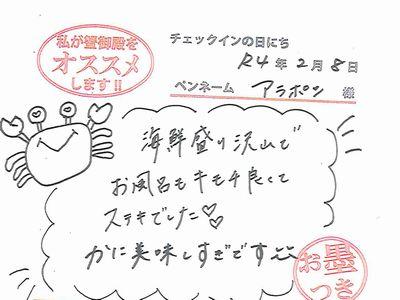 私が蟹御殿を
オススメ
します!!
チェックインの日にち
R4年2月8日
ペンネーム アラポン 様
海鮮盛り沢山で
お風呂もキモチ良くて
ステキでした♡♡
かに美味しすぎです
お墨
つき